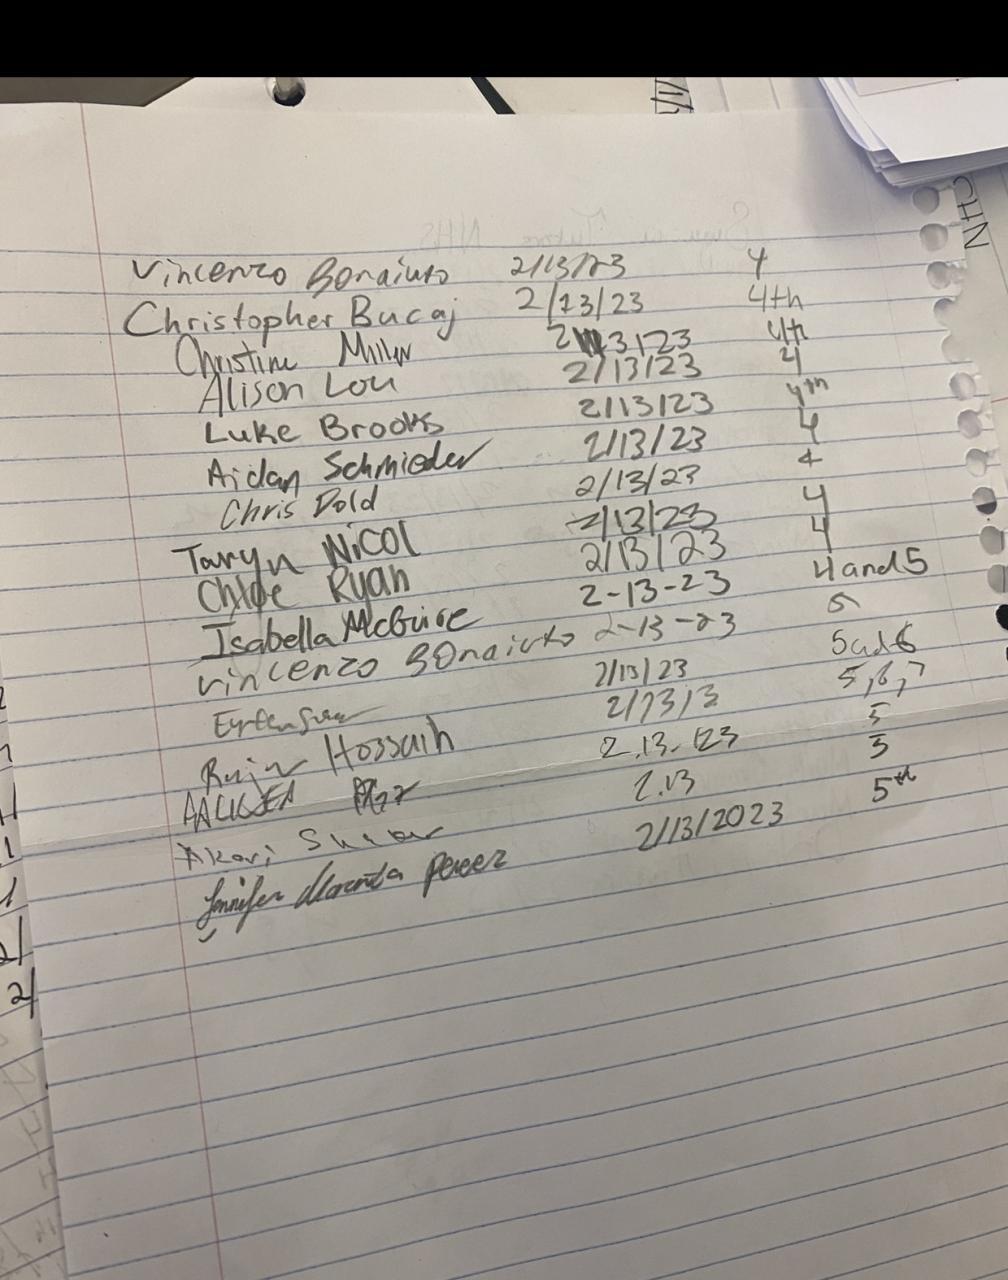 NHC
Vincenzo Bonaiuto 2/13/23 4
Christopher Bucaj 2/13/23 4th
Christine Miller 2/13/23 4th
Alison Lou 2/13/23 4
Luke Brooks 2/13/23 4th
Aidan Schmieder 2/13/23 4
Chris Dold 2/13/23 4
Taryn Nicol 2/13/23 4
Chloe Ryan 2/13/23 4
Isabella McGuire 2-13-23 4 and 5
Vincenzo Bonaiuto 2-13-23 5
2/13/23 5 and 6
Hossain 2/13/3 5,6,7
2.13.123 5
Akari 2.13 5
Jennifer Perez 2/13/2023 5th